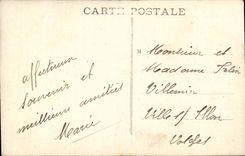 CARTE POSTALE
affectueux
souvenir et
meilleures amitiés
Marie
Monsieur et
Madame
Villemin
Ville s/ Illon
Vosges